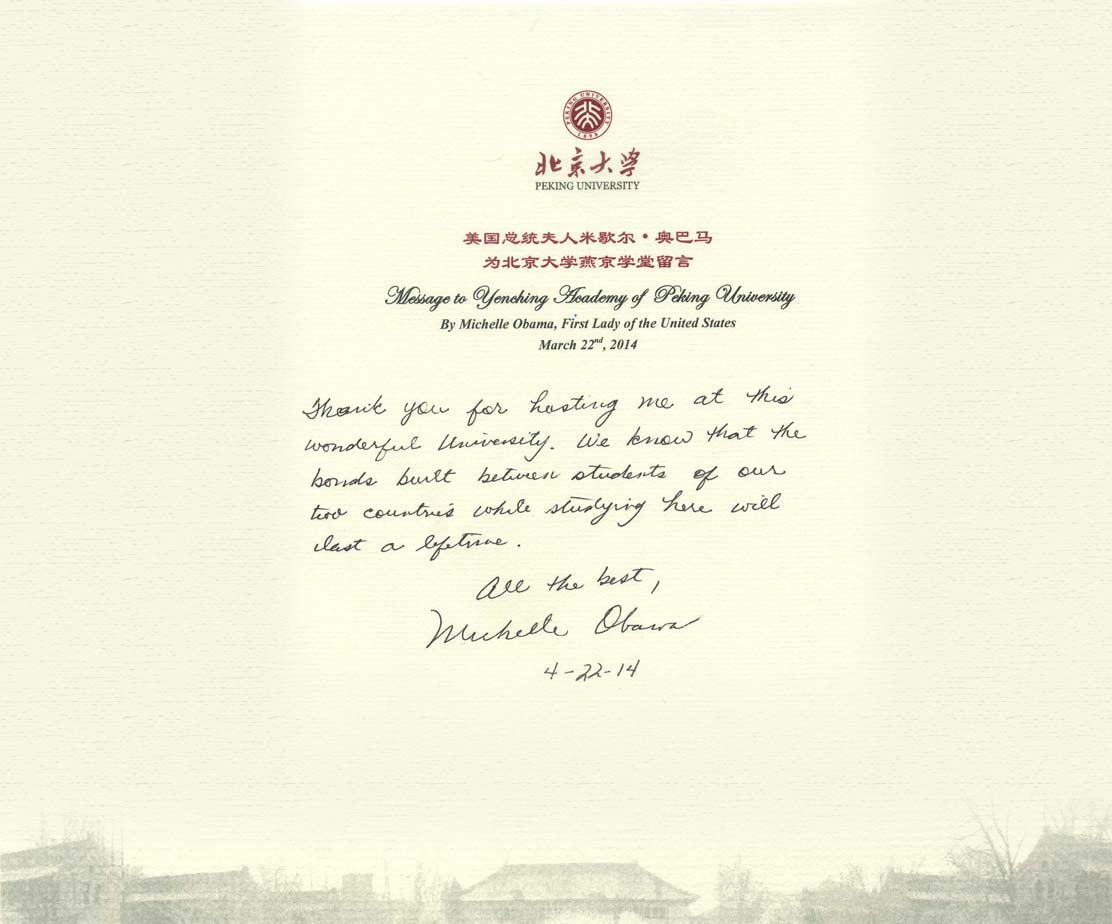 PEKING UNIVERSITY
1898
北京大学
PEKING UNIVERSITY
美国总统夫人米歇尔·奥巴马
为北京大学燕京学堂留言
Message to Yenching Academy of Peking University
By Michelle Obama, First Lady of the United States
March 22nd, 2014
Thank you for hosting me at this
wonderful University. We know that the
bonds built between students of our
two countries while studying here will
last a lifetime.
All the best,
Michelle Obama
4-22-14